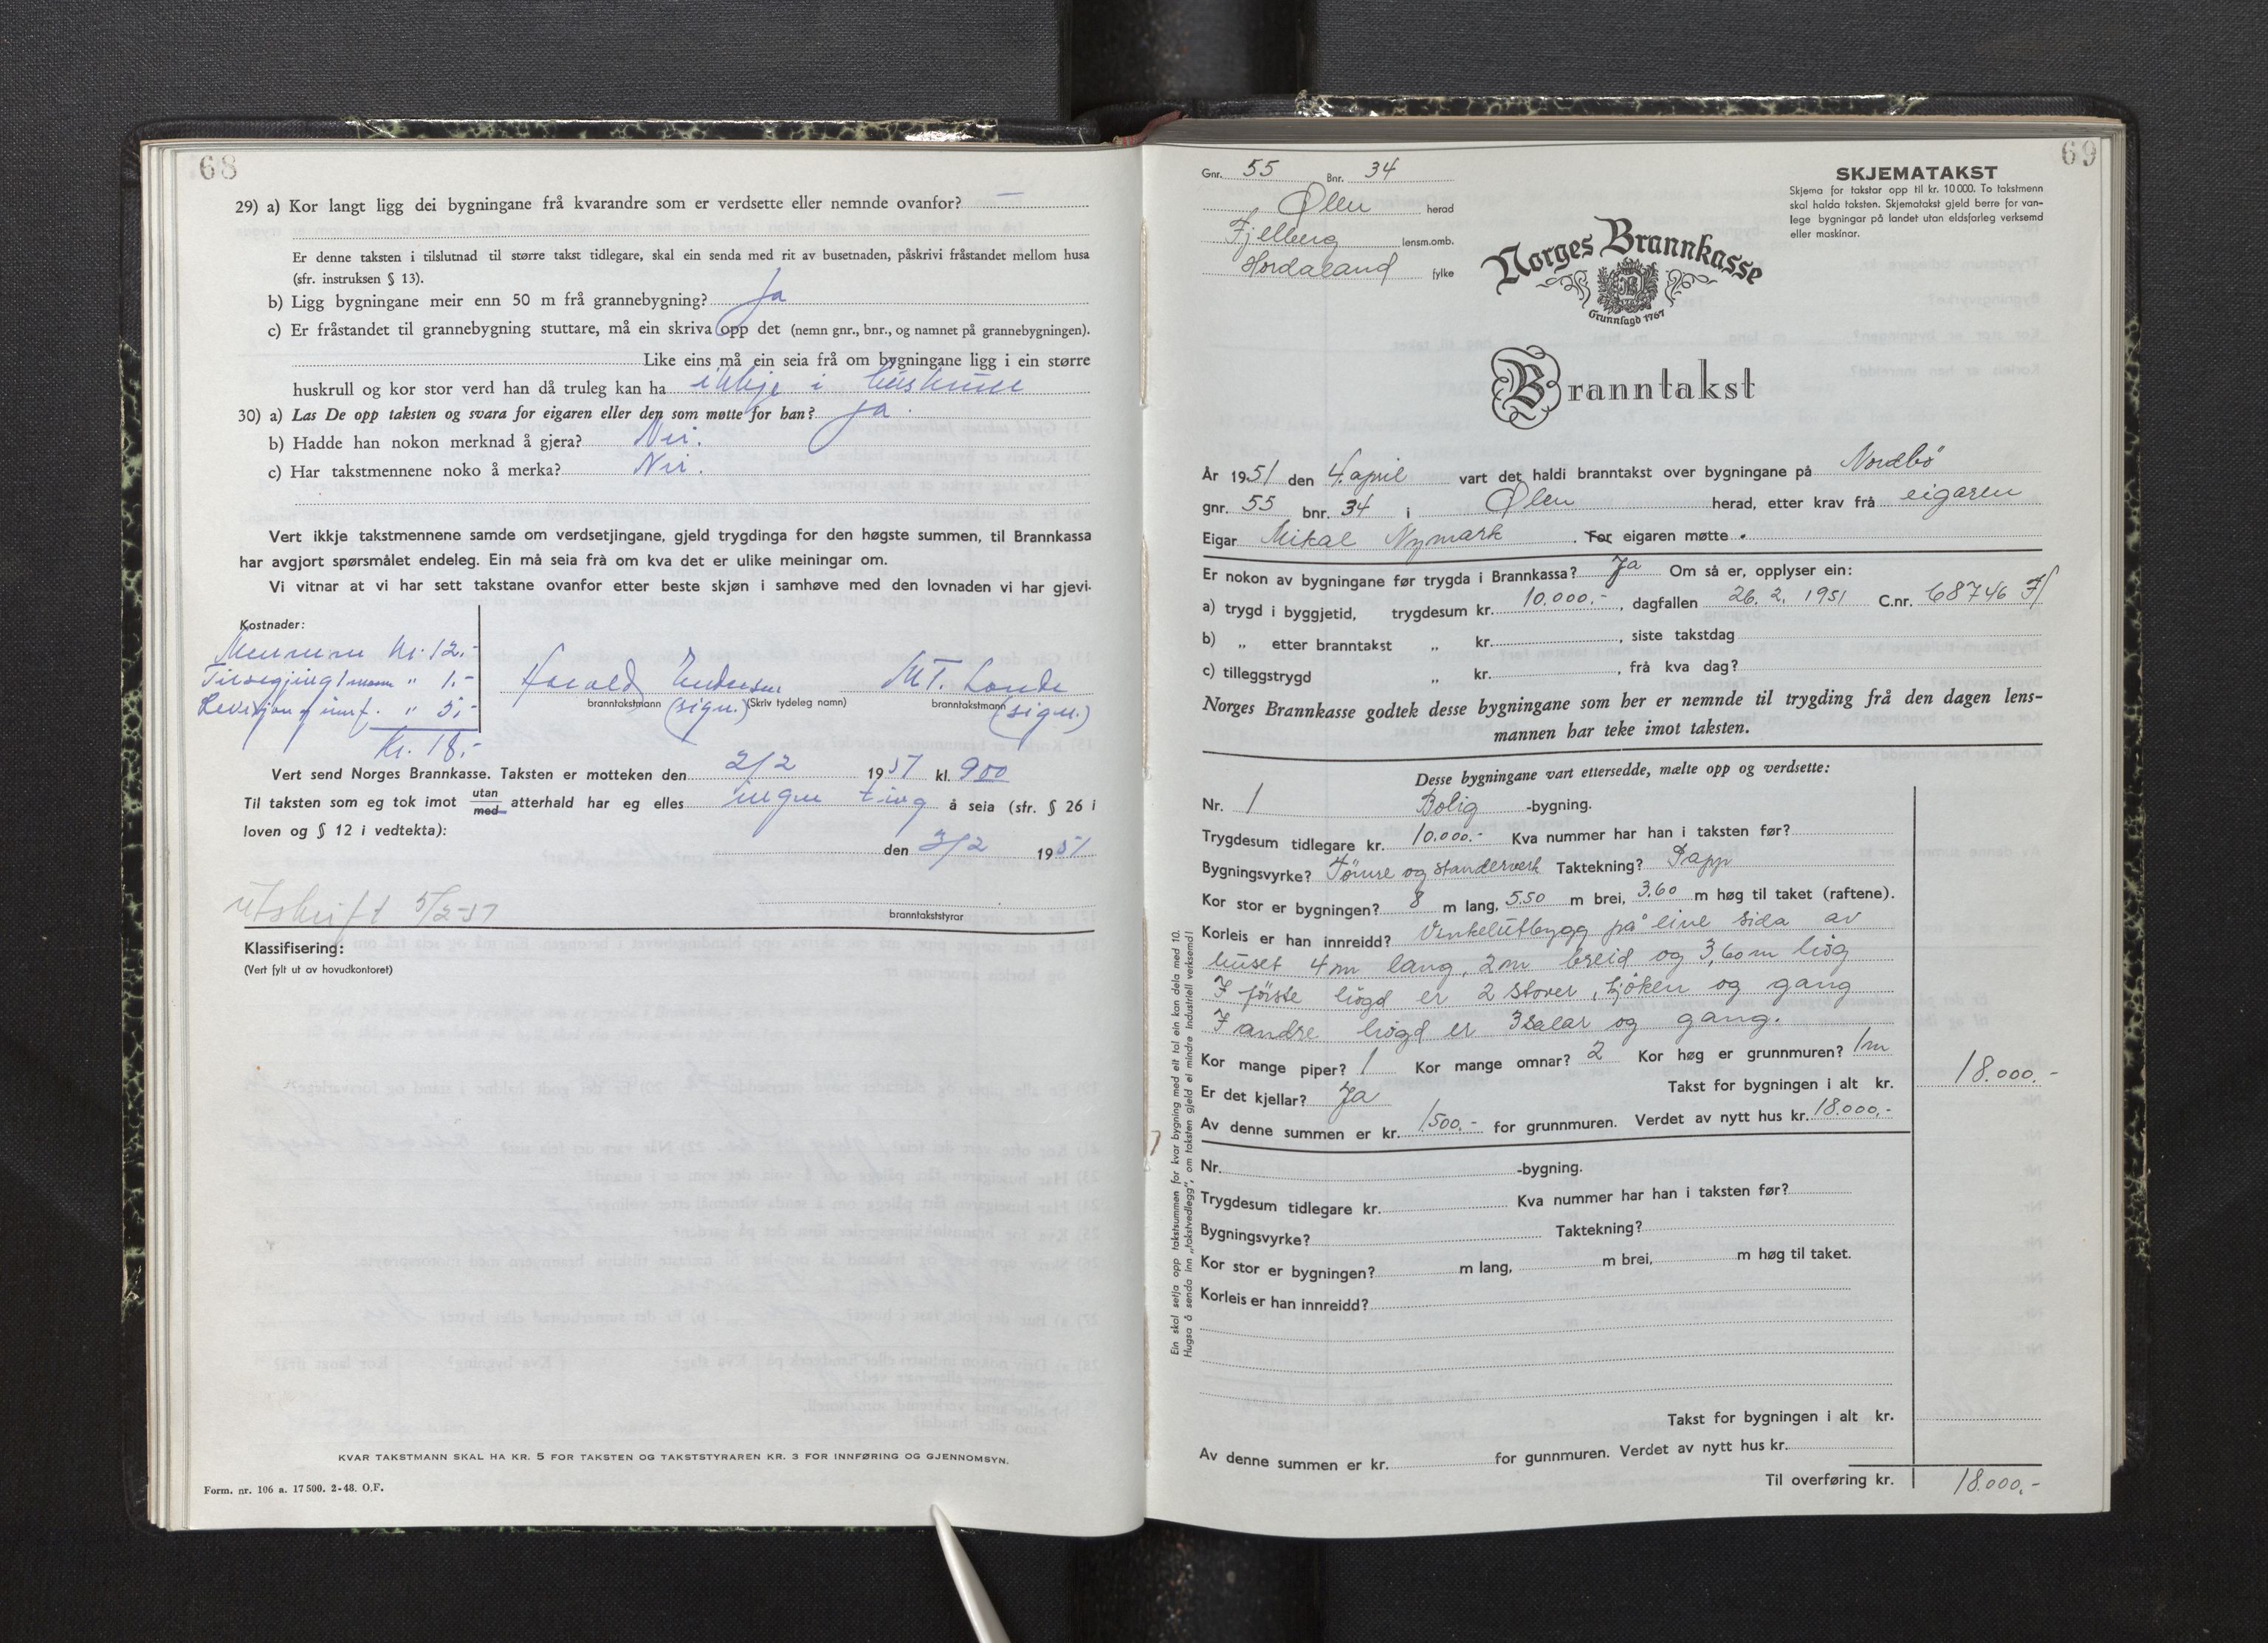 68
29) a) Kor langt ligg dei bygningane frå kvarandre som er verdsette eller nemnde ovanfor? —
Er denne taksten i tilslutnad til større takst tidlegare, skal ein senda med rit av busetnaden, påskrivi fråstandet mellom husa
(sfr. instruksen § 13).
b) Ligg bygningane meir enn 50 m frå grannebygning? Ja
c) Er fråstandet til grannebygning stuttare, må ein skriva opp det (nemn gnr., bnr., og namnet på grannebygningen).
Like eins må ein seia frå om bygningane ligg i ein større
huskrull og kor stor verd han då truleg kan ha ikkje i huskrull
30) a) Las De opp taksten og svara for eigaren eller den som møtte for han? ja.
b) Hadde han nokon merknad å gjera? Nei.
c) Har takstmennene noko å merka? Nei.
Vert ikkje takstmennene samde om verdsetjingane, gjeld trygdinga for den høgste summen, til Brannkassa
har avgjort spørsmålet endeleg. Ein må seia frå om kva det er ulike meiningar om.
Vi vitnar at vi har sett takstane ovanfor etter beste skjøn i samhøve med den lovnaden vi har gjevi.
Kostnader:
Mennene kr. 12.-
Tilsegjing 1 mann " 1.-
Revisjon og innf. " 5.-
Kr. 18.-
Harald Endresen M.T. Londe
branntakstmann (sign.) (Skriv tydeleg namn) branntakstmann (sign.)
Vert send Norges Brannkasse. Taksten er motteken den 2/2 1951 kl. 900
Til taksten som eg tok imot utan/med atterhald har eg elles ingen ting å seia (sfr. § 26 i
loven og § 12 i vedtekta):
den 3/2 1951
Utskrift 5/2-51
branntakststyrar
Klassifisering:
(Vert fylt ut av hovudkontoret)
KVAR TAKSTMANN SKAL HA KR. 5 FOR TAKSTEN OG TAKSTSTYRAREN KR. 3 FOR INNFØRING OG GJENNOMSYN.
Form. nr. 106 a. 17 500. 2-48. O.F.
69
Gnr. 55 Bnr. 34
Ølen herad
Fjelberg lensm.omb.
Hordaland fylke
SKJEMATAKST
Skjema for takstar opp til kr. 10 000. To takstmenn
skal halda taksten. Skjematakst gjeld berre for van-
lege bygningar på landet utan eldsfarleg verksemd
eller maskinar.
Norges Brannkasse
Grunnlagd 1767
Branntakst
År 1951 den 4. april vart det haldi branntakst over bygningane på Nordbö
gnr. 55 bnr. 34 i Ølen herad, etter krav frå eigaren
Eigar Mikal Nymark. For eigaren møtte.
Er nokon av bygningane før trygda i Brannkassa? Ja Om så er, opplyser ein:
a) trygd i byggjetid, trygdesum kr. 10.000.-, dagfallen 26. 2. 1951 C.nr. 68746 F/
b) „ etter branntakst „ kr. , siste takstdag
c) tilleggstrygd „ kr. , frå kva dag?
Norges Brannkasse godtek desse bygningane som her er nemnde til trygding frå den dagen lens-
mannen har teke imot taksten.
Desse bygningane vart ettersedde, mælte opp og verdsette:
Nr. 1 Bolig -bygning.
Trygdesum tidlegare kr. 10.000.- Kva nummer har han i taksten før?
Bygningsvyrke? Tömre og standerverk Taktekning? Papp
Kor stor er bygningen? 8 m lang, 5.50 m brei, 3.60 m høg til taket (raftene).
Korleis er han innreidd? Vinkelutbygg på eine sida av
huset 4m lang, 2m breid og 3,60m hög
I förste högd er 2 stover, kjöken og gang
I andre högd er 3 salar og gang.
Kor mange piper? 1 Kor mange omnar? 2 Kor høg er grunnmuren? 1m
Er det kjellar? Ja Takst for bygningen i alt kr. 18.000.-
Av denne summen er kr. 1500.- for grunnmuren. Verdet av nytt hus kr. 18.000.-
Nr. -bygning.
Trygdesum tidlegare kr. Kva nummer har han i taksten før?
Bygningsvyrke? Taktekning?
Kor stor er bygningen? m lang, m brei, m høg til taket.
Korleis er han innreidd?
Takst for bygningen i alt kr.
Av denne summen er kr. for gunnmuren. Verdet av nytt hus kr.
Til overføring kr. 18.000.-
Ein skal setja opp takstsummen for kvar bygning med eit tal ein kan dela med 10.
Hugsa å senda inn „takstvedlegg", om taksten gjeld ei mindre industriell verksemd!